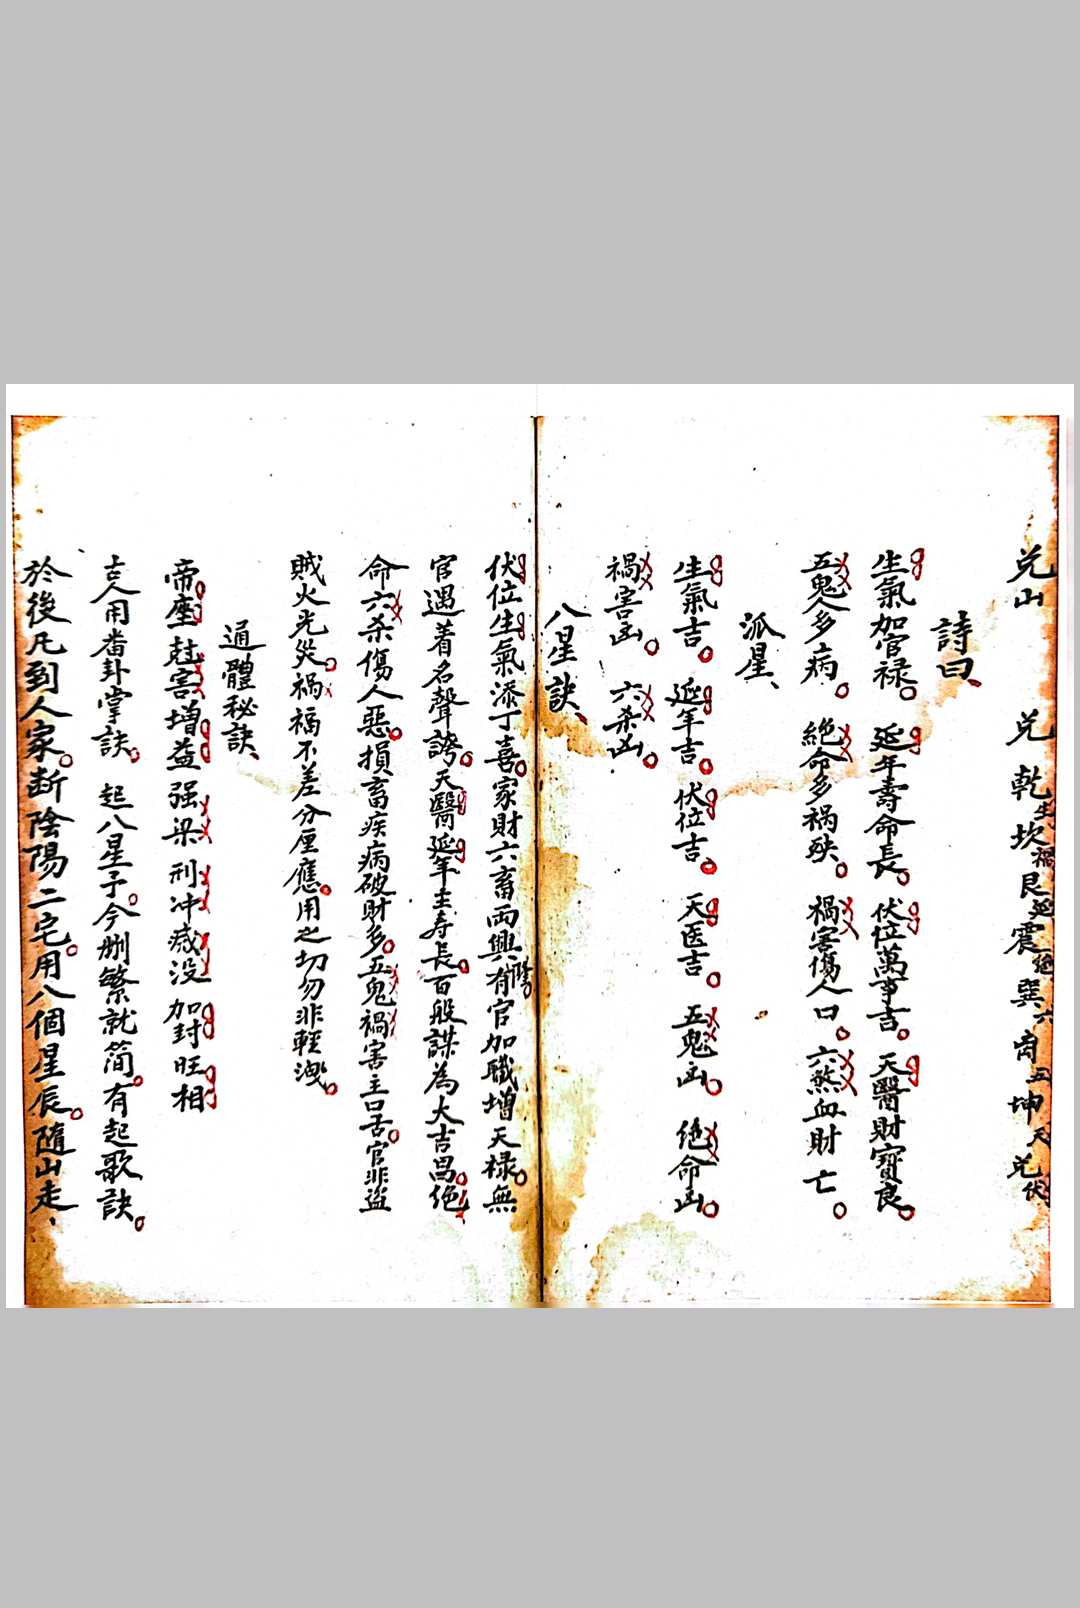 兑山 兑 乾生 坎禍 艮延 震絶 巽六 离五 坤天 兑伏
詩曰、
生氣加官禄。延年壽命長。伏位萬事吉。天醫財寶良。
五鬼人多病。絶命多祸殃。禍害傷人口。六煞血財亡。
派星、
生氣吉。延年吉。伏位吉。天医吉。五鬼凶。絶命凶。
禍害凶。六杀凶。
八星訣、
伏位生氣添丁喜。家財六畜両興隆。有官加職增天禄。無
官遇着名聲誇。天醫延年主寿長。百般謀為大吉昌。绝
命六杀傷人惡。損畜疾病破財多。五鬼禍害主口舌。官非盗
賊火光災。禍福不差分厘應。用之切勿非輕洩。
通體秘訣、
帝座 尅害 增益 强梁 刑冲 歳没 加封 旺相
古人用番卦掌訣。起八星子。今刪繁就简。有起歌訣。
於後凡到人家。断陰陽二宅。用八個星辰。隨山走、